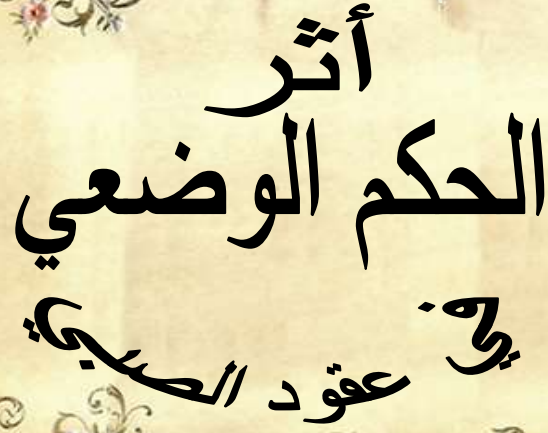 أثر
الحكم الوضعي
في عقود الصبي